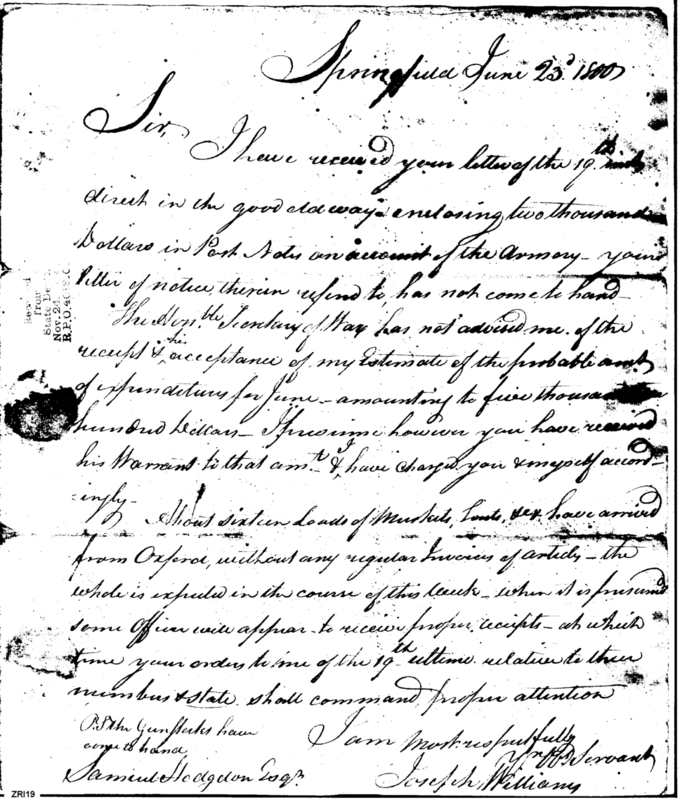 Springfield June 23d 1800
Sir,
I have received your letter of the 19th inst
direct in the good old way enclosing two thousand
Dollars in Post Notes on account of the Armory - your
letter of notice therein referd to has not come to hand
The Honble Secretary of War has not advised me of the
receipt & his acceptance of my Estimate of the probable amt
of expenditures for June - amounting to five thousand
hundred Dollars - I presume however you have received
his Warrant to that amt & I have charged you & myself accord-
-ingly -
About sixteen Loads of Muskets, Tents, &c have arrived
from Oxford, without any regular Invoices of articles - the
whole is expected in the course of this Week - when it is presumed
some Officer will appear to receive proper receipts - at which
time your orders to me of the 19th ultimo relative to their
number & state shall command proper attention
P.S. The Gunstocks have
come to hand
I am most respectfully
Yr Ob Servant
Samuel Hodgdon Esqr
Joseph Williams
Received
from
State De
Nov. 24
R.P.O.
ZRI19